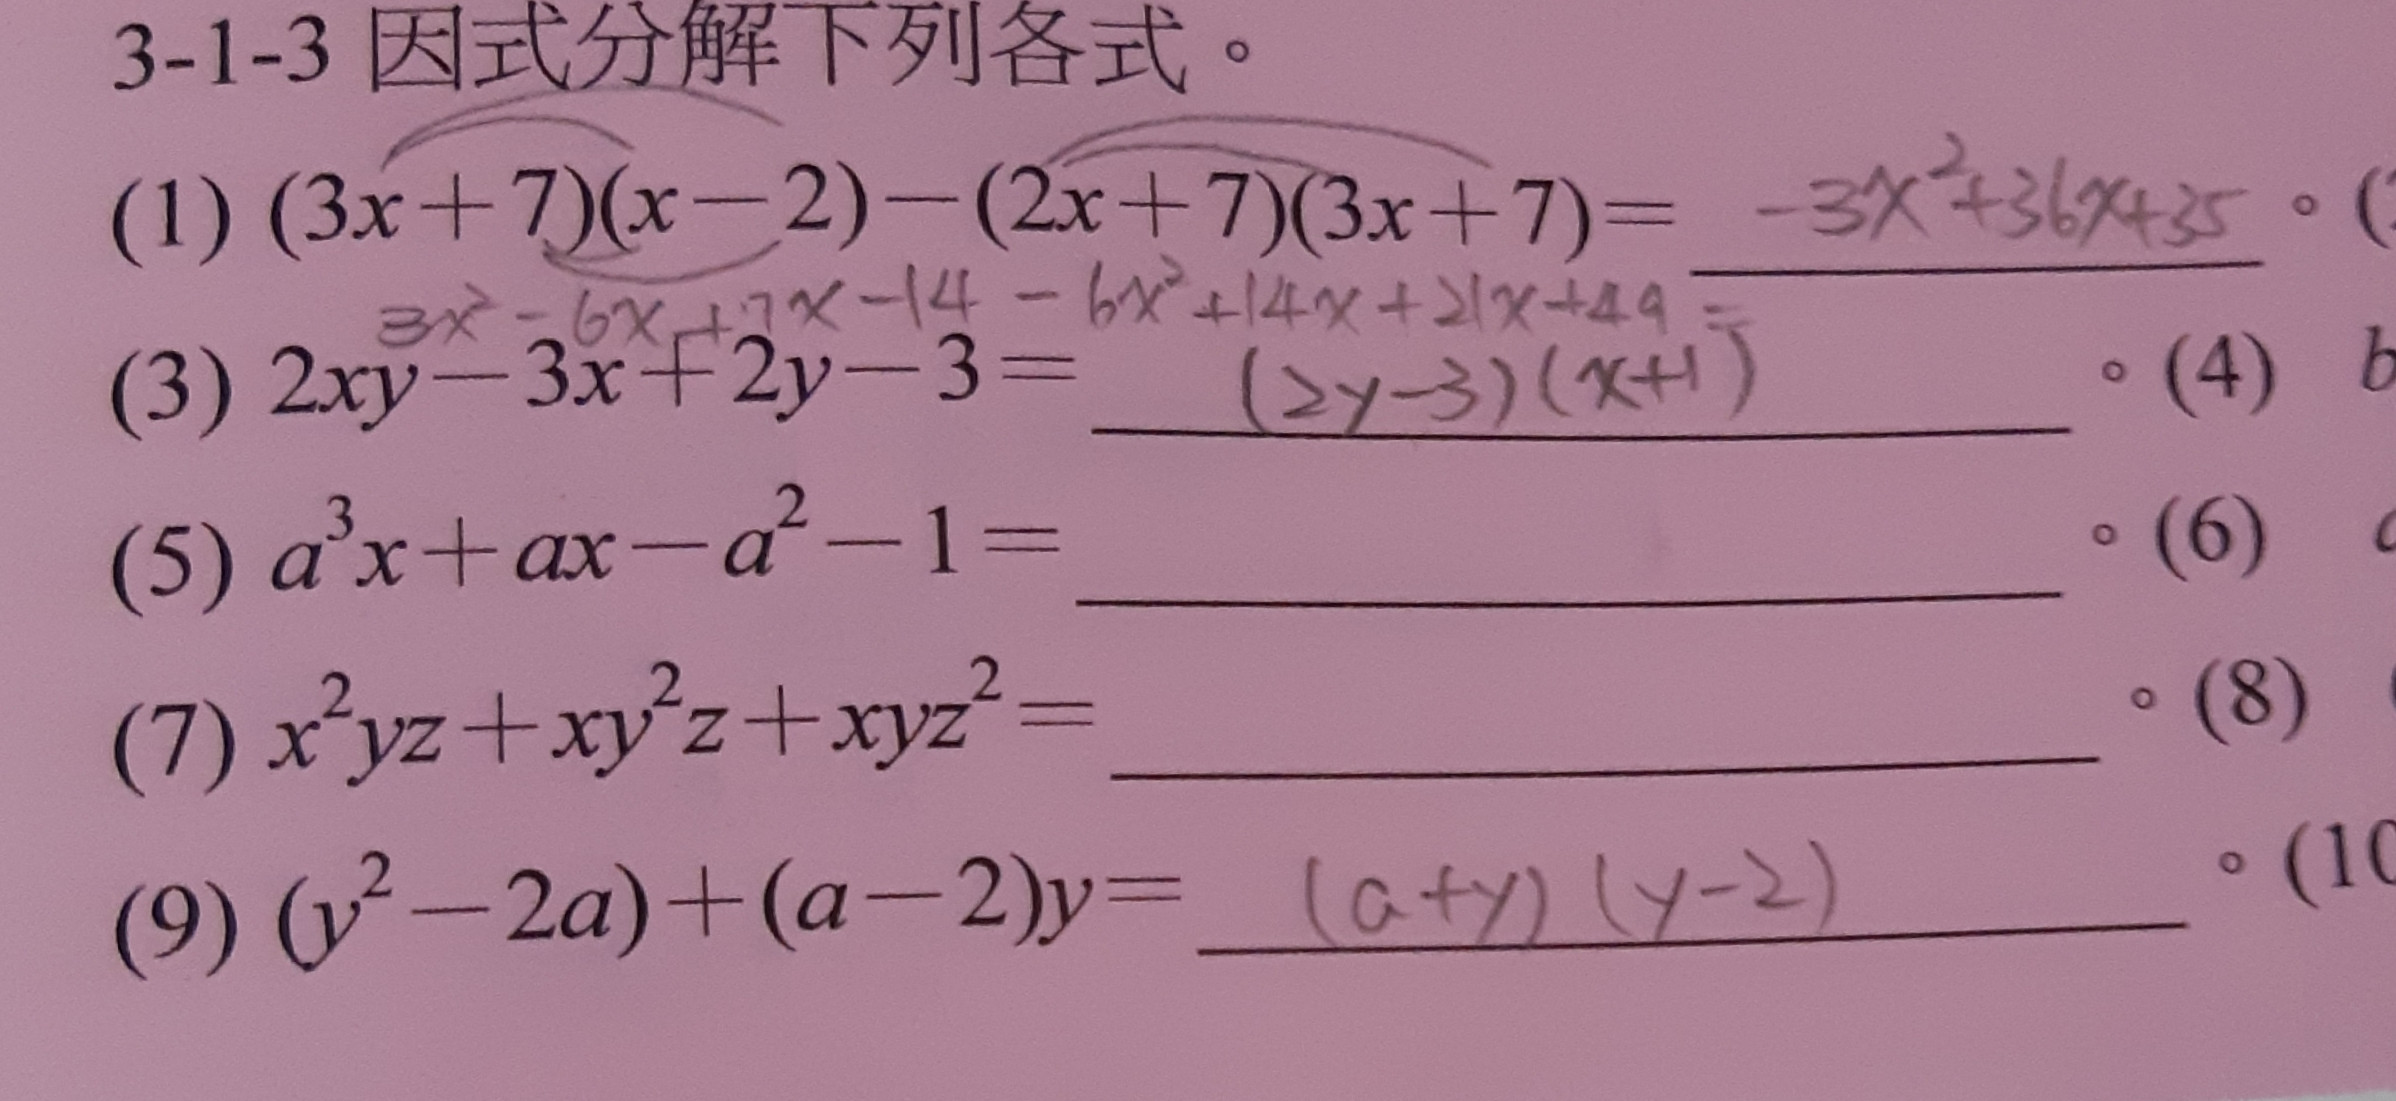 3-1-3 因式分解下列各式。
(1) (3x+7)(x-2)-(2x+7)(3x+7)= -3x²+36x+35 。(
3x²-6x+7x-14 - 6x²+14x+21x+49 =
(3) 2xy-3x+2y-3= (2y-3)(x+1) 。(4) b
(5) a³x+ax-a²-1= 。(6)
(7) x²yz+xy²z+xyz²= 。(8)
(9) (y²-2a)+(a-2)y= (a+y)(y-2) 。(10